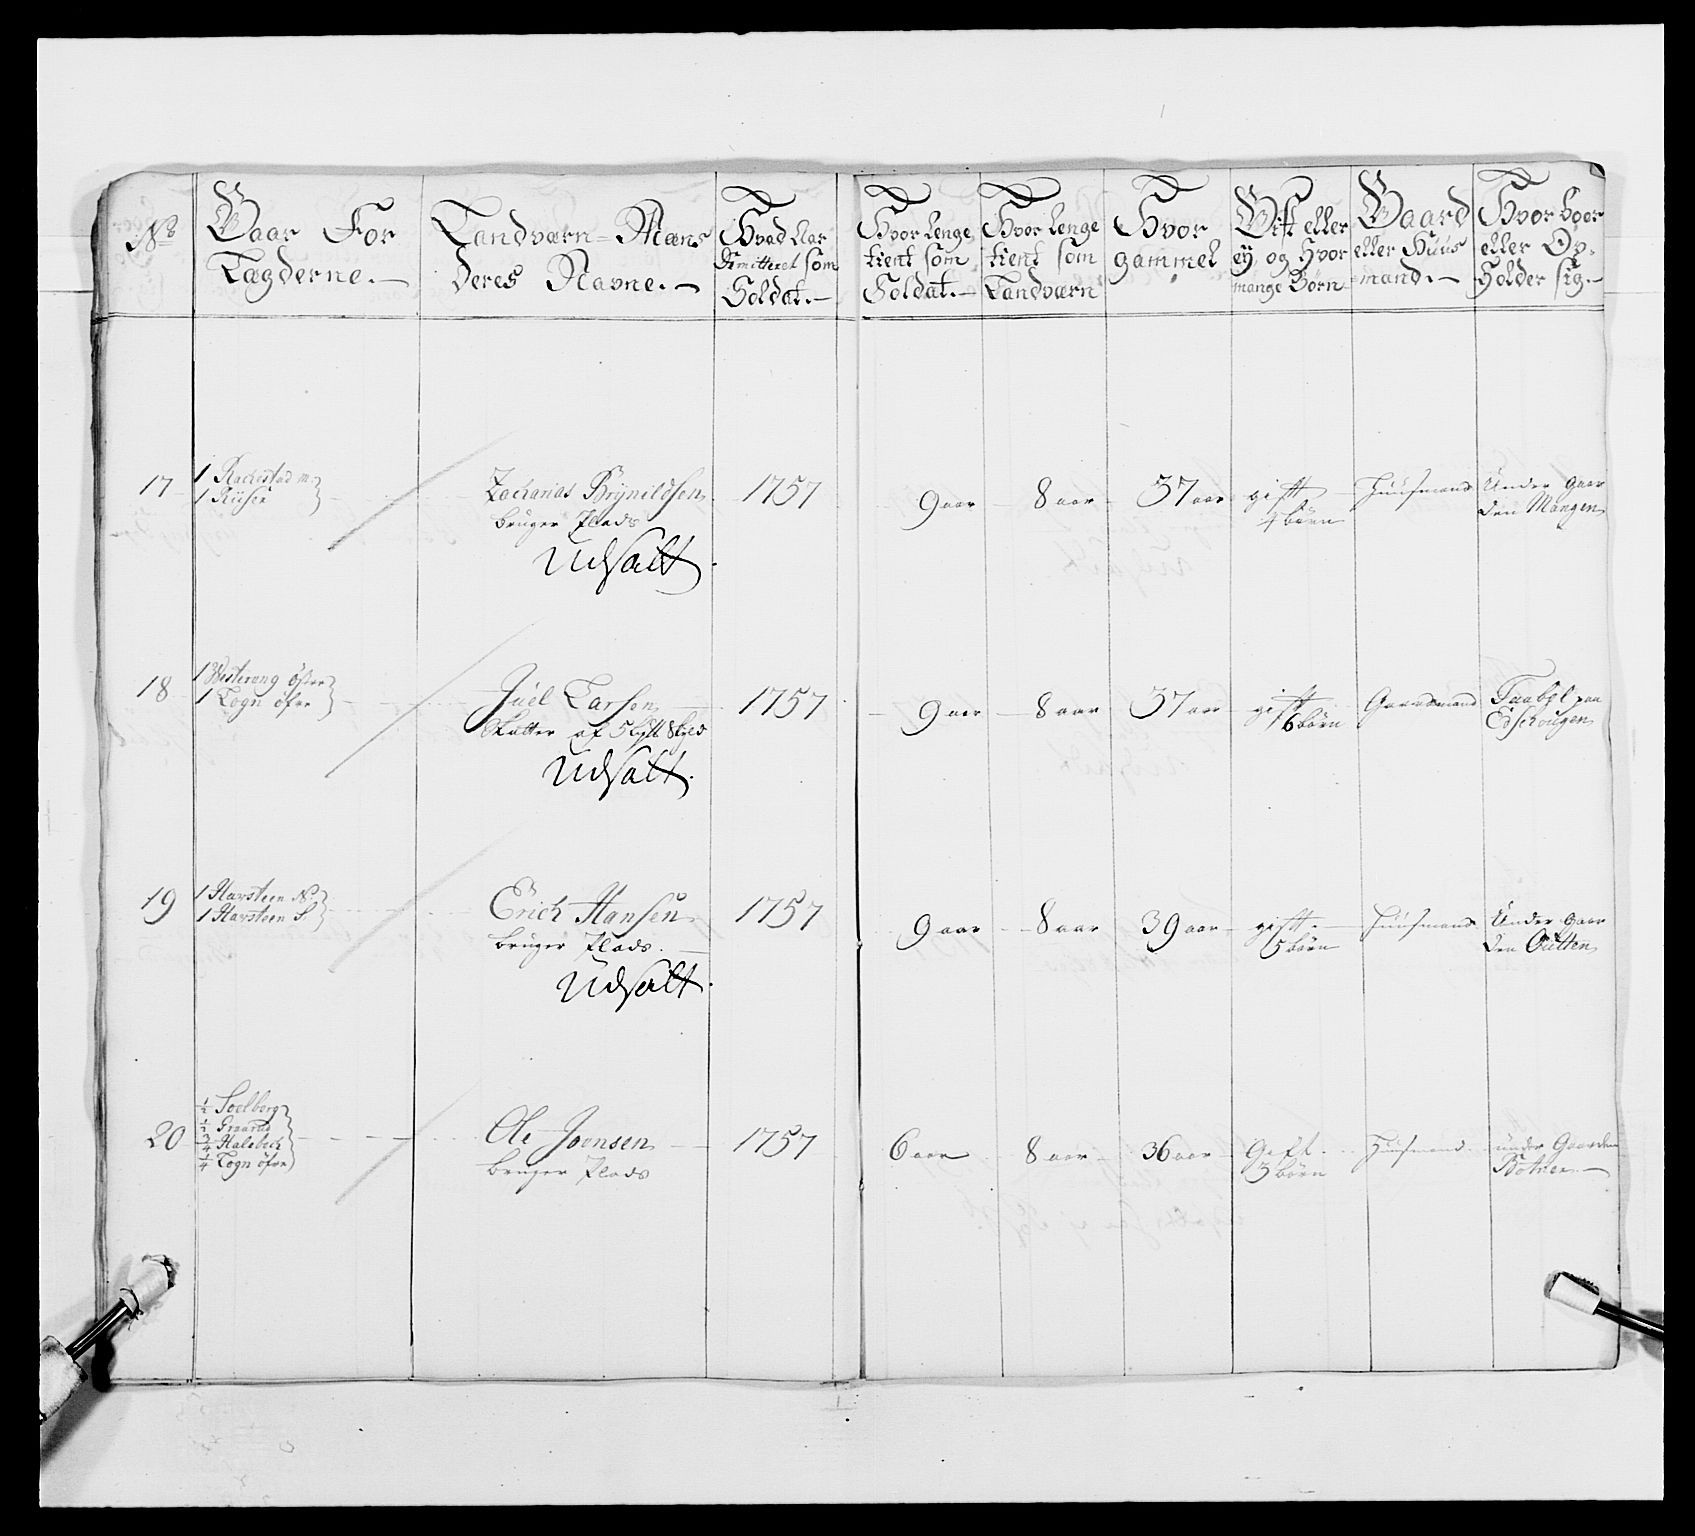 No
Gaar For
Lægderne.
Landværn-Mæns
deres Navne.
Hvad Aar
dimitteret som
Soldat.
Hvor Lenge
tient som
Soldat.
Hvor Lenge
tient som
Landværn
Hvor
gammel
Gift eller
ey og Hvor
mange Børn
Gaard
eller Huus
mand.
Hvor boer
eller Op-
Holder sig.
17
1 Rackestad m:
1 Riiser
Zacharias Brynildsen
bruger Plads
Udsatt
1757
9 aar
8 aar
37 aar
gift
4 børn
Huusmand
Under gaar
den Mangen
18
1 Westereng öfre
1 Logn öfre
Juel Larsen
Skatter af 5 Skyld
Udsatt
1757
9 aar
8 aar
37 aar
gift
6 börn
Gaardmand
Taabøl paa
Edschougen
19
1 Harsteen N:
1 Harsteen S
Erich Hansen
bruger Plads.
Udsatt
1757
9 aar
8 aar
39 aar
gift
5 börn
Huusmand
Under gaar
den Outten
20
1/2 Soelberg
1/2 Graarud
3/4 Halebech
1/4 Logn öfre
Ole Joensen
bruger Plads
1757
6 aar
8 aar
36 aar
Gift.
3 börn
Huusmand
under Gaarden
Botner